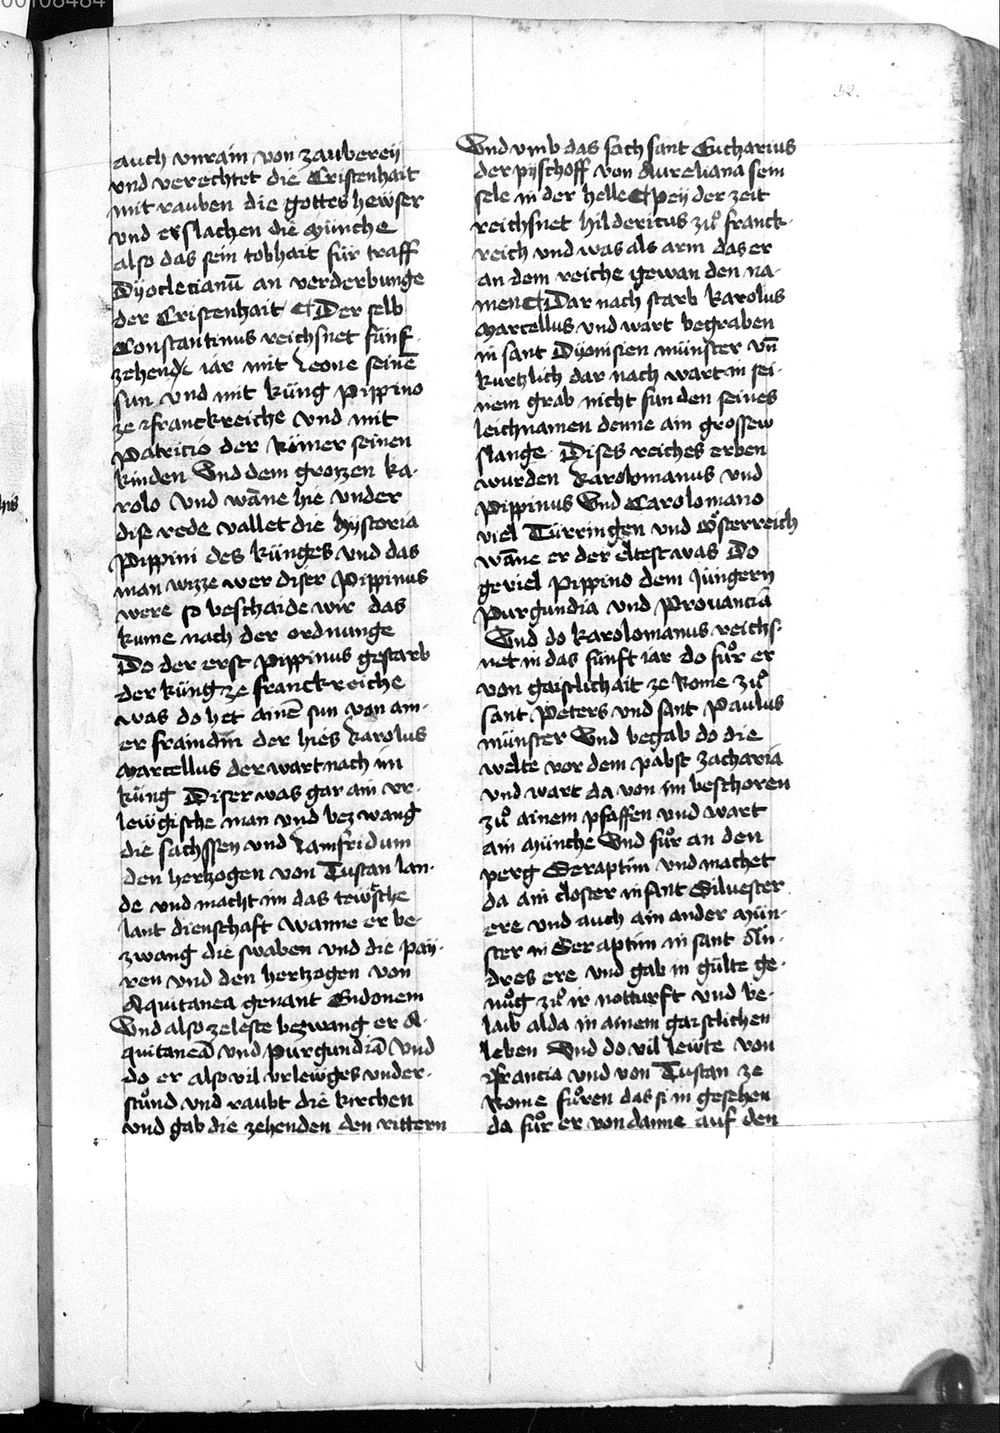 00108484
52.
auch vnrain von zauberey
vnd verechtet die Cristenhait
mit rauben die gottes hewser
vnd erslachen die münche
also das sein tobhait für traff
Dyocletianū an verderbunge
der Cristenhait ¶ Der selb
Constantinus reichsnet fünf
zehende iar mit Leone seinē
sun vnd mit küng Pippino
ze franckreiche vnd mit
Patricio der Römer seinen
kinden Vnd dem grozzen ka-
rolo vnd wāne hie vnder
dise rede vallet die hystoria
Pippini des künges vnd das
man wizze wer diser Pippinus
were so beschaide wir das
kume nach der ordnunge
Do der erst Pippinus gestarb
der küng ze franckreiche
was do het ainē sun von ain-
er fraindin der hies karolus
Marcellus der wart nach im
küng Diser was gar ain vr-
lewgische man vnd bezwang
die sachssen vnd Lamfridum
den hertzogen von Tuscan lan-
de vnd macht im das tewsche
lant dienschaft Wanne er be-
zwang die swaben vnd die pay-
ren vnd den hertzogen von
Aquitanea genant Eudonem
Vnd also zeleste bezwang er A-
quitaneā vnd Purgundiā Vnd
do er also vil vrlewges vnder-
stůnd vnd raubt die kirchen
vnd gab die zehenden den rittern
Vnd vmb das sach sant Eucharius
der pyschoff von Aureliana sein
sele in der helle ¶ Pey der zeit
reichsnet hildericus zů franck-
reich vnd was als arm das er
an dem reiche gewan den na-
men ¶ Dar nach starb karolus
Marcellus vnd wart begraben
in sant Dyonisien münster vn̄
kurtzlich dar nach wart in sei-
nem grab nicht funden seines
leichnamen denne ain grossew
slange Dises reiches erben
wurden karolomanus vnd
Pippinus Vnd Carolomano
viel Türringen vnd Österreich
wāne er der eltest was Do
geviel Pippino dem Jüngern
Purgundia vnd Prouancia
Vnd do karolomanus reichs-
net in das fünft iar do fůr er
von gaistlichait ze Rome zů
sant Peters vnd sant Paulus
münster Vnd begab do die
welte vor dem pabst zacharia
vnd wart da von im beschoren
zů ainem pfaffen vnd wart
ain münche Vnd fůr an den
perg Seraptim vnd machet
da ain closter in sant Siluester
ere vnd auch ain ander mün-
ster in Seraptim in sant An-
dres ere vnd gab in gülte ge-
nůg zů ir notturft vnd be-
laib alda in ainem gaistlichen
leben Vnd do vil lewte von
Francia vnd von Tuscan ze
Rome fůren das si in gesehen
da fůr er von danne auf den